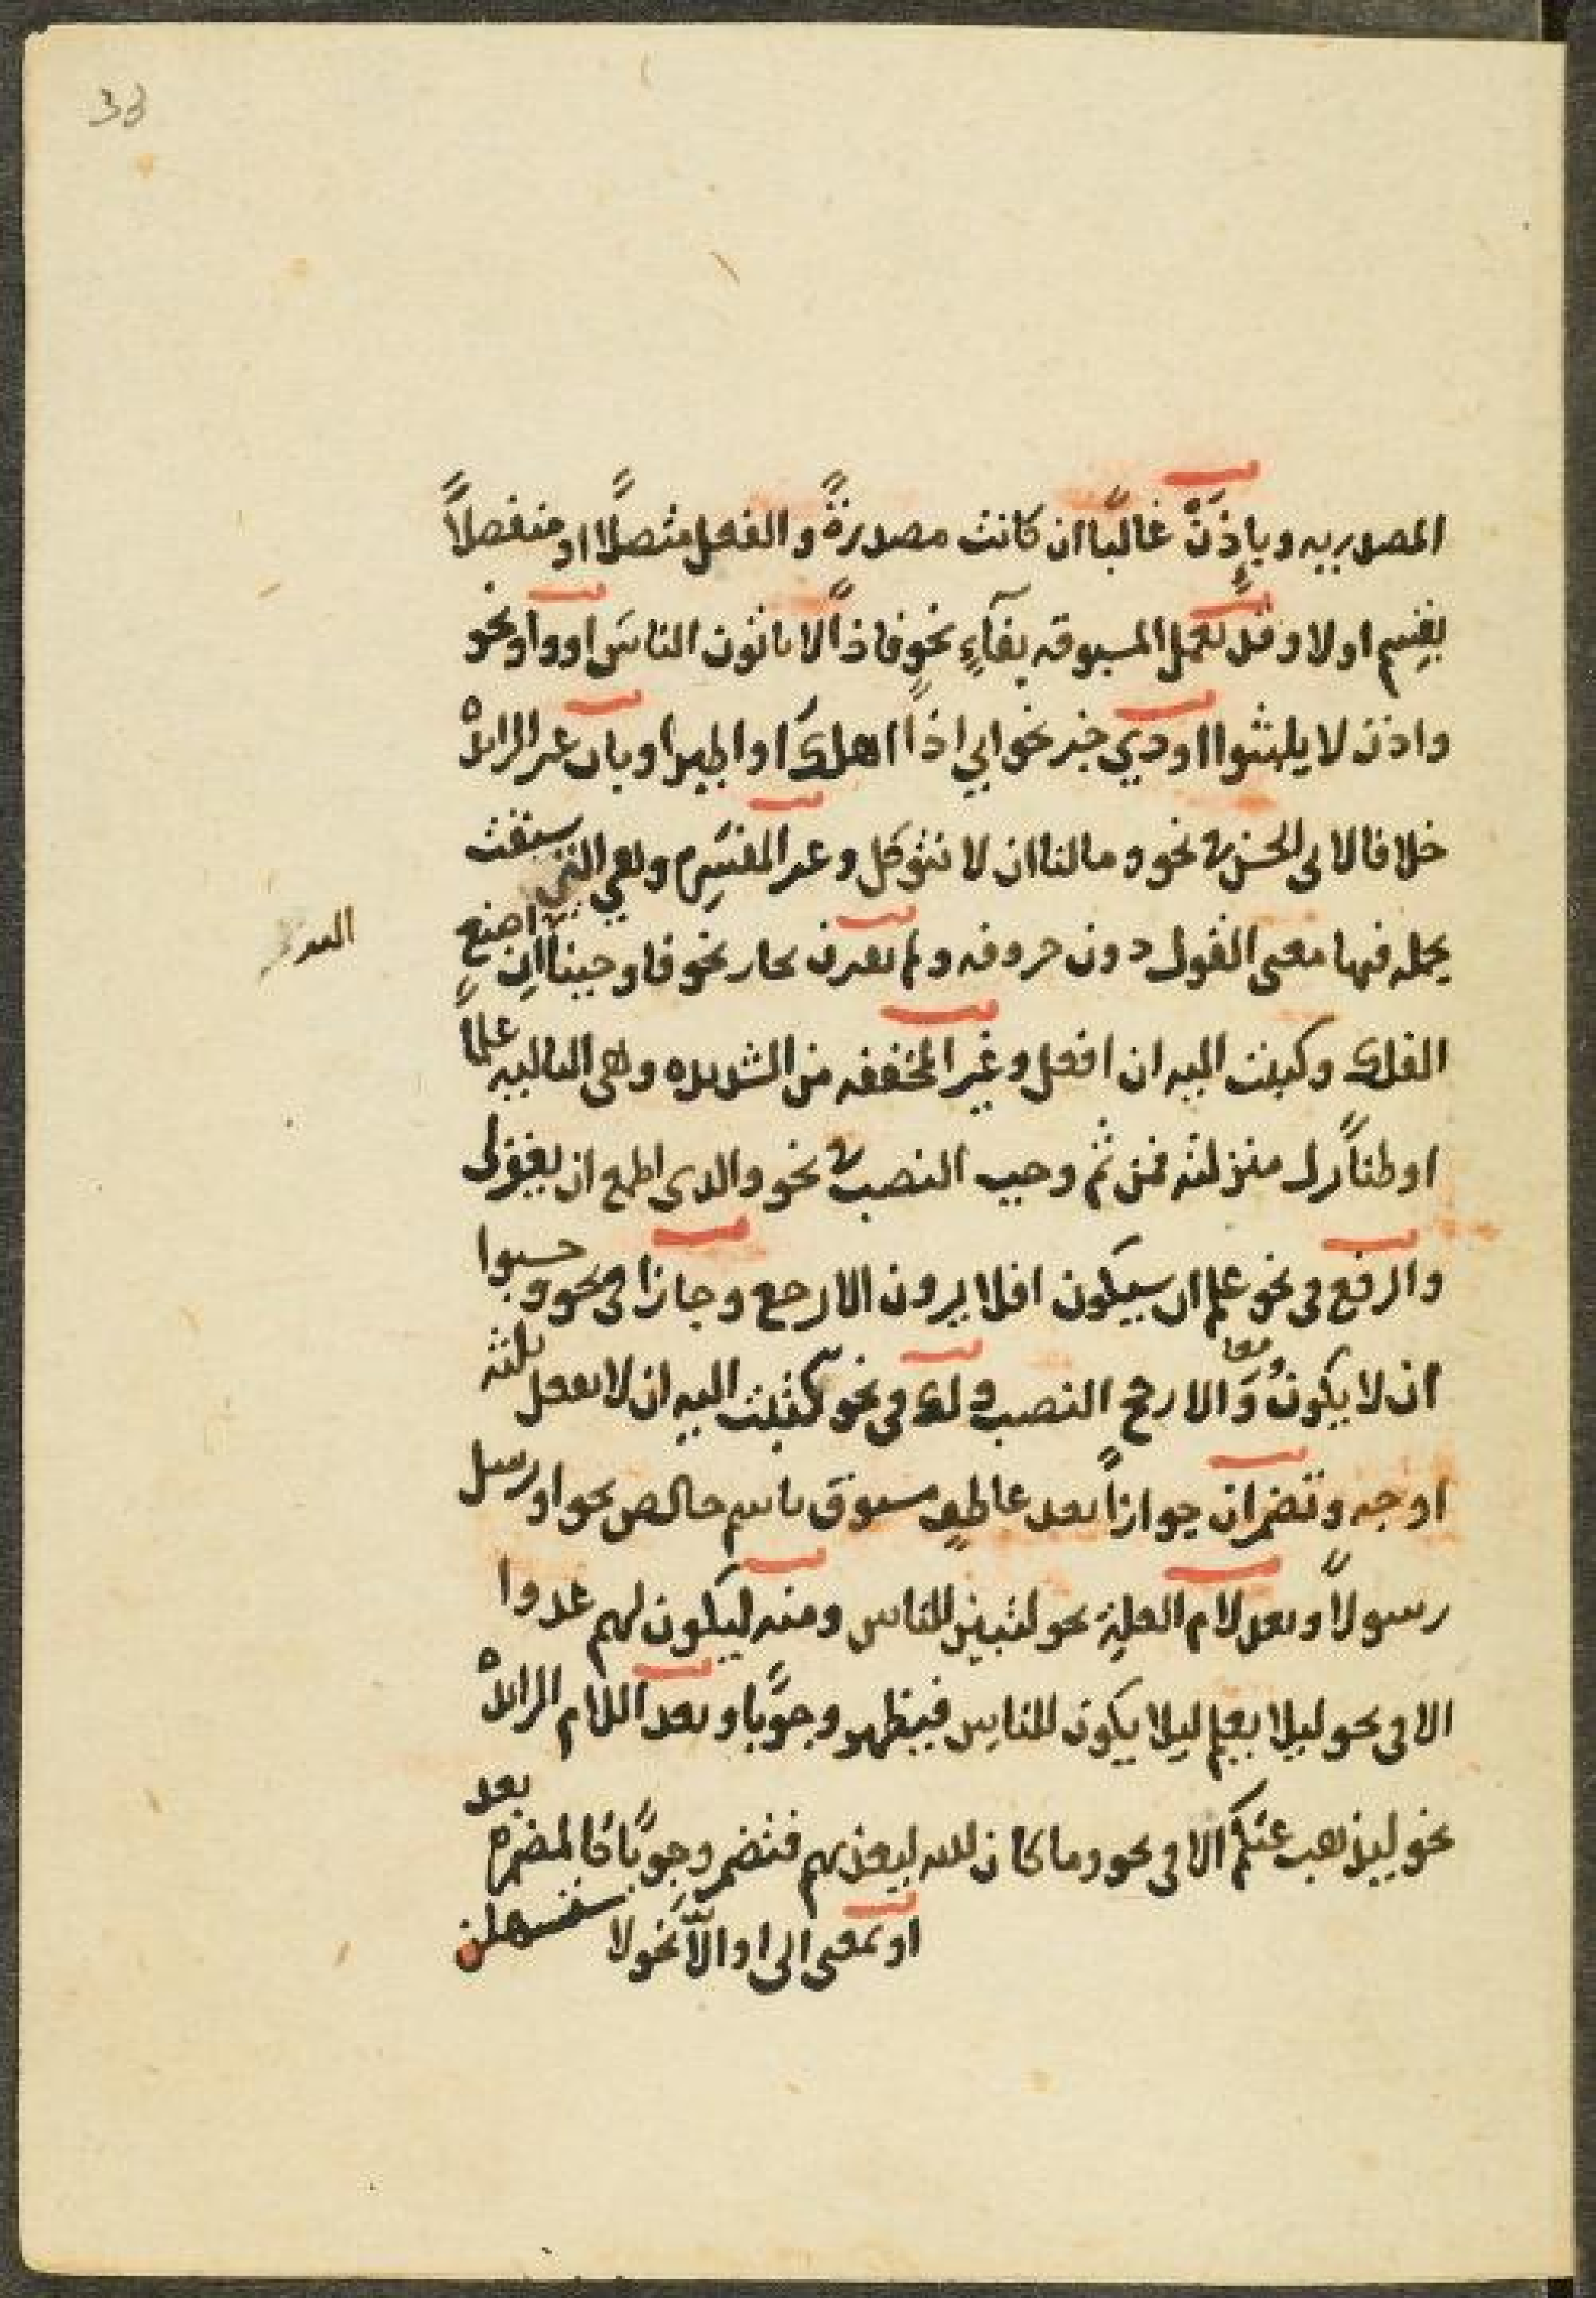 33
المصدريه وباذَنْ غالبًا ان كانت مصدرةً والفعل متصلًا او منفصلًا
بقسم او لا وقد تعمل المسبوقه بفآءٍ نحو فاذاً لا ياتون الناسَ او واو نحو
واذن لا يلبثوا او ذي خبر نحو اني اذاً اهلكَ او اطيرا وبان غير الزائدة
خلافا لابي الحسن في نحو وما لنا ان لا نتوكل وغير المفسِّره وهي التي سبقت
بجمله فيها معنى القول دون حروفه ولم تقترن بجار نحو فاوحينا ان اصنعِ
الفلك وكتبت اليه ان افعل وغير المخففه من الشديده وهي التاليه علمًا
او ظنًا نزل منزلته فمن ثم وجب النصب في نحو والذي اطمع ان يغفر لي
والرفع في نحو علم ان سيكون افلا يرون الا يرجع وجازا في نحو وحسبوا
ان لا يكونُ والارجح النصب ولك في نحو كتبت اليه ان لا تفعل ثلثه
اوجه وتضمر ان جوازاً بعد عاطفٍ مسبوق باسم خالص نحو او يرسل
رسولاً وبعد لام العلة نحو لتبين للناس ومنه ليكون لهم عدوا
الا في نحو ليلا يعلم ليلا يكون للناس فيظهر وجوبًا وبعد اللام الزائدة
نحو ليذهب عنكم الا في نحو وما كان لله ليعذبهم فتضمر وجوبًا كالمضمرة بعد
او بمعنى الى او الّا نحو لا ستسهلن